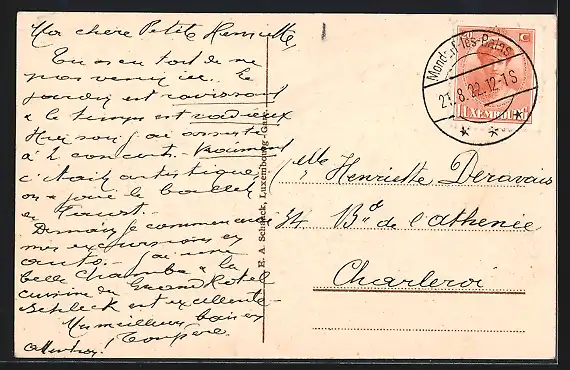 Ma chère Petite Henriette,
Tu as eu tort de ne
pas venir ici. Le
jardin est ravissant
& le temps est radieux
Hier soir j'ai assisté
à 1 concert. Vraiment
c'était artistique
on a joué le ballet
de Faust.
Demain je commencerai
mes excursions en
auto. J'ai une
belle chambre & la
cuisine du Grand Hotel
Schleck est excellente
Un meilleur baiser
Ton père
E. A. Schaack, Luxembourg-Gare
Mondorf-les-Bains
21.8.22.12-1 S
LUXEMBOURG
Melle Henriette Deravais
34 Bd de l'athénée
Charleroi